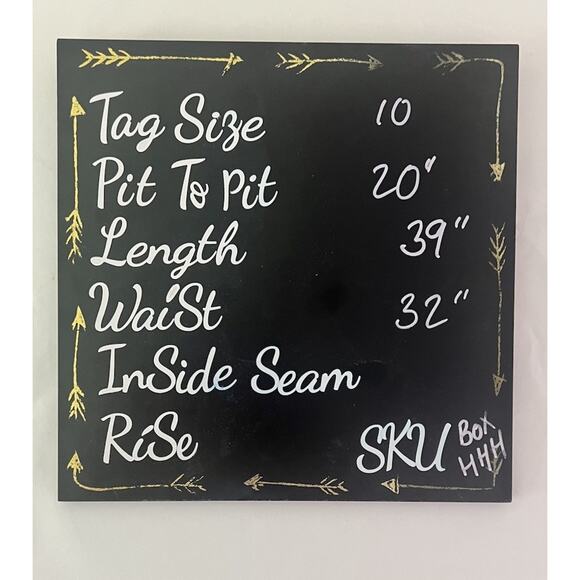 Tag Size 10
Pit To Pit 20"
Length 39"
WaiSt 32"
InSide Seam
RiSe
SKU BOX
HHH